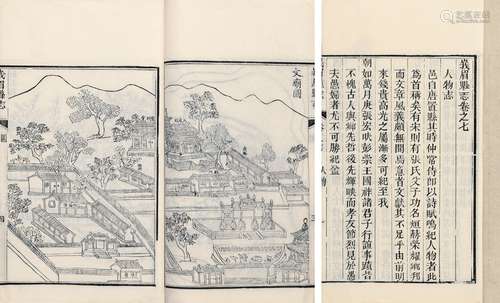 峩眉縣志卷之七
人物志
邑自唐置縣其時仲常侍郎以詩賦鳴紀人物者此
爲首稱矣有宋則有張氏父子功名烜赫榮耀鄉邦
而文章風義顧無聞焉意者文獻其不足乎由前明
來錢貴高光之屬漸多可紀至我
朝如萬月庚張宏畎彭崇王國祚諸君子行誼事蹟皆
不愧古人與鄉先哲後先輝映而孝友節烈見於愚
夫愚婦者尤不可勝紀葢
峩眉縣志
人物
文廟圖
峩眉縣志
圖